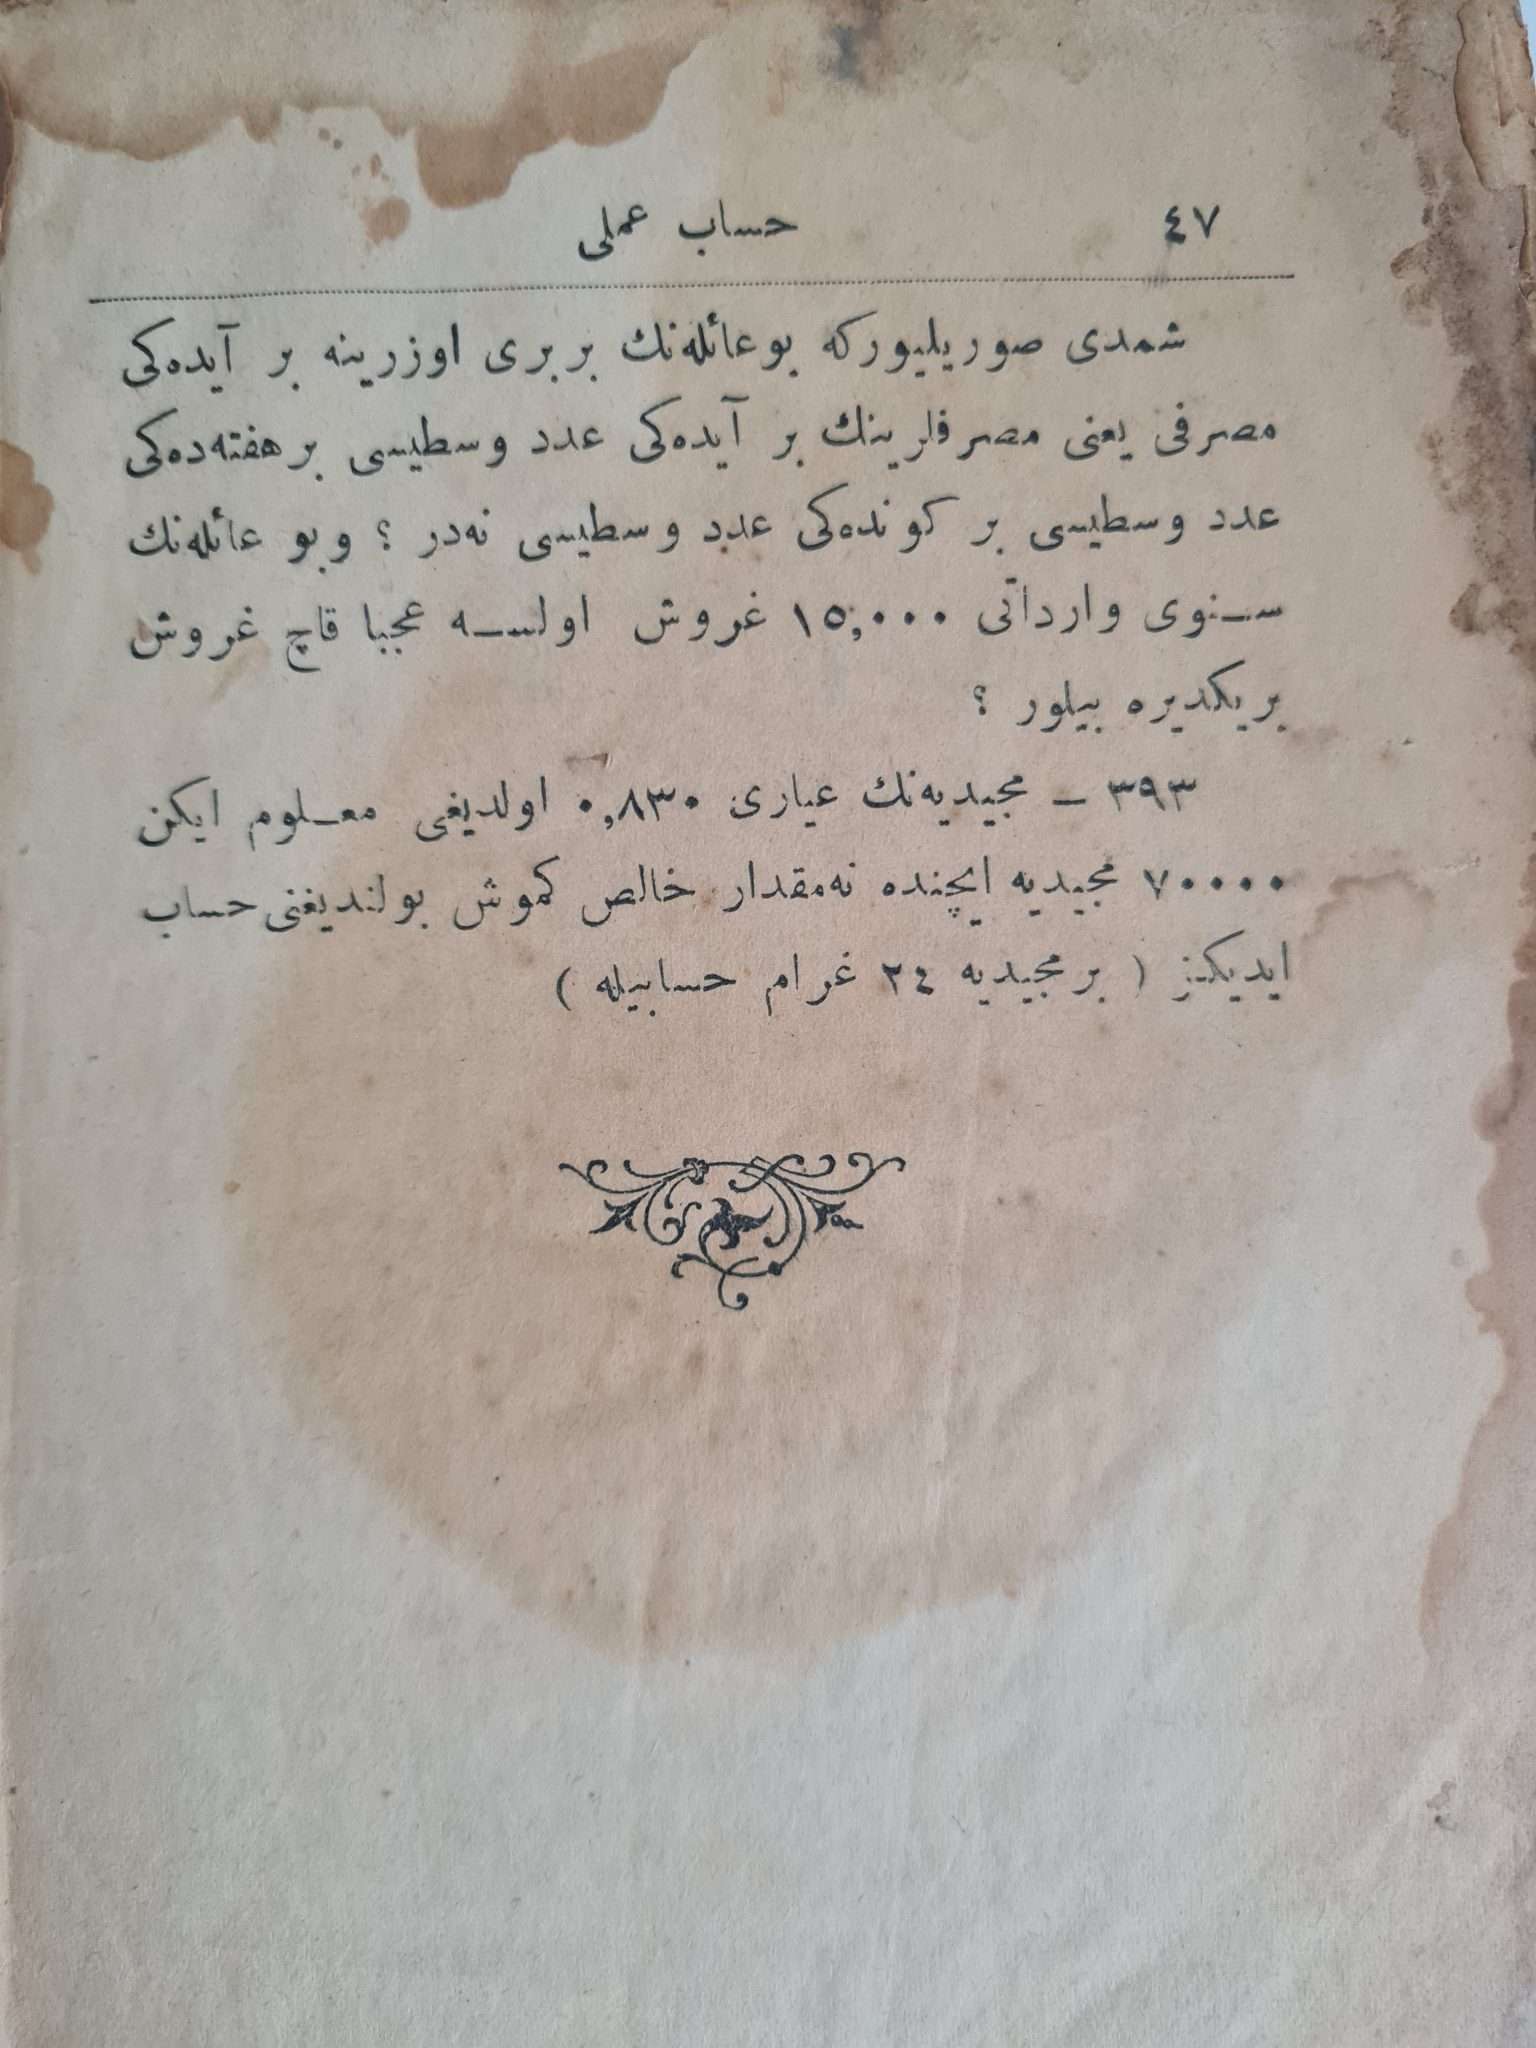 ٤٧ حساب عملی
شمدی صوریلیورکه بو عائله‌نك بربری اوزرینه بر آیده‌کی
مصرفی یعنی مصرفلرینك بر آیده‌کی عدد وسطیسی بر هفته‌ده‌کی
عدد وسطیسی بر کونده‌کی عدد وسطیسی نه‌در ؟ وبو عائله‌نك
سنوی وارداتی ١٥,٠٠٠ غروش اولسه عجبا قاچ غروش
بریکدیره بیلور ؟
٣٩٣ — مجیدیه‌نك عیاری ٠,٨٣٠ اولدیغی معلوم ایکن
٧٠٠٠٠ مجیدیه ایچنده نه‌مقدار خالص کموش بولندیغنی حساب
ایدیکز ( بر مجیدیه ٢٤ غرام حسابیله )